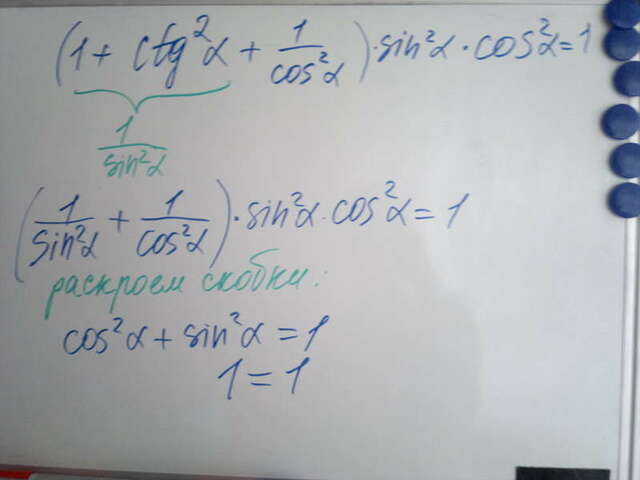 (1 + ctg²α + 1/cos²α) · sin²α · cos²α = 1
1/sin²α
(1/sin²α + 1/cos²α) · sin²α · cos²α = 1
раскроем скобки:
cos²α + sin²α = 1
1 = 1